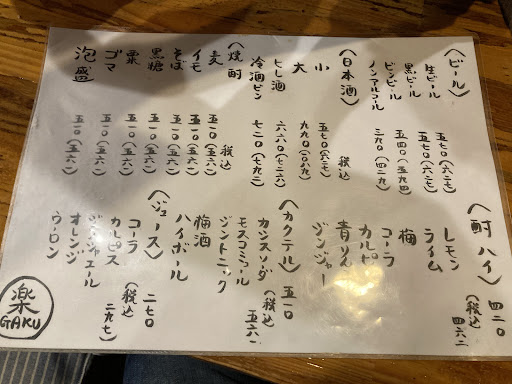 〈ビール〉
生ビール 五七〇(六二七)
黒ビール 五七〇(六二七)
ビンビール 五四〇(五九四)
ノンアルコール 三九〇(四二九)
〈日本酒〉 税込
小 五七〇(六二七)
大 九九〇(一〇八九)
ヒレ酒 六六〇(七二六)
冷酒ビン 七二〇(七九二)
〈焼酎〉 税込
麦 五一〇(五六一)
イモ 五一〇(五六一)
そば 五一〇(五六一)
黒糖 五一〇(五六一)
栗 五一〇(五六一)
ゴマ 五一〇(五六一)
泡盛 五一〇(五六一)
〈酎ハイ〉 四二〇
(税込 四六二)
レモン
ライム
梅
コーラ
カルピス
ジンジャー
〈カクテル〉 五一〇
(税込 五六一)
カシスソーダ
モスコミュール
ジントニック
梅酒
ハイボール
〈ジュース〉 二七〇
(税込 二九七)
コーラ
カルピス
ジンジャエール
オレンジ
ウーロン
楽
GAKU